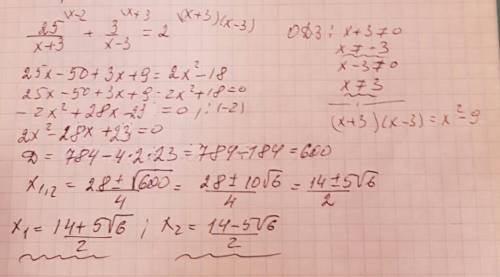 25/(x+3) ^(x-2) + 3/(x-3) ^(x+3) = 2 ^((x+3)(x-3))
ОДЗ: x+3≠0
x≠-3
x-3≠0
x≠3
(x+3)(x-3) = x²-9
25x-50+3x+9=2x²-18
25x-50+3x+9-2x²+18=0
-2x²+28x-23=0 |:(-2)
2x²-28x+23=0
D=784-4·2·23=784-184=600
x₁,₂ = (28±√600)/4 = (28±10√6)/4 = (14±5√6)/2
x₁ = (14+5√6)/2 ; x₂ = (14-5√6)/2